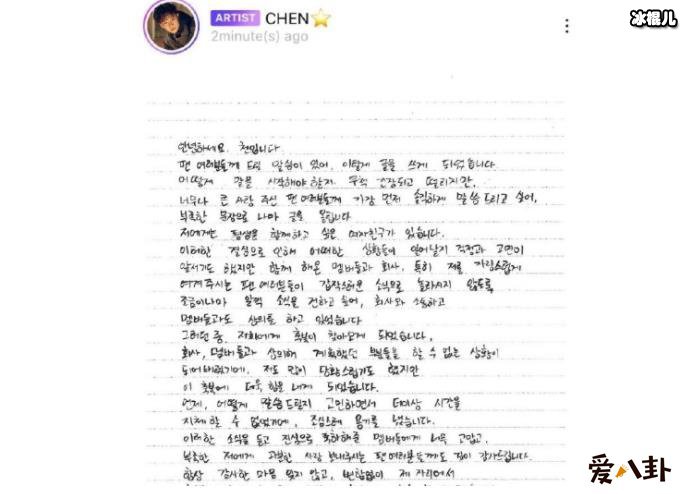 冰棍儿
ARTIST CHEN⭐
2minute(s) ago
안녕하세요. 첸입니다
팬 여러분들께 드릴 말씀이 있어, 이렇게 글을 쓰게 되었습니다
어떻게 말을 시작해야 할지, 무척 긴장되고 떨리지만,
너무나 큰 사랑 주신 팬 여러분들께 가장 먼저 솔직하게 말씀드리고 싶어,
부족한 문장으로 나마 글을 올립니다
저에게는 평생을 함께하고 싶은 여자친구가 있습니다.
이러한 결심으로 인해 어떠한 상황들이 일어날지 걱정과 고민이
앞서기도 했지만 함께 해온 멤버들과 회사, 특히 저를 자랑스럽게
여겨주시는 팬 여러분들이 갑작스러운 소식으로 놀라시지 않도록
조금이나마 일찍 소식을 전하고 싶어, 회사와 소통하고
멤버들과도 상의를 하고 있었습니다
그러던 중, 저희에게 축복이 찾아오게 되었습니다.
회사, 멤버들과 상의해 계획했던 부분들을 할 수 없는 상황이
되어버렸기에, 저도 많이 당황스럽기도 했지만
이 축복에 더욱 힘을 내게 되었습니다.
언제, 어떻게 말씀드릴지 고민하면서 더이상 시간을
지체할 수 없었기에, 조심스레 용기를 냈습니다.
이러한 소식을 듣고 진심으로 축하해준 멤버들에게 너무 고맙고,
부족한 저에게 과분한 사랑 보내주시는 팬 여러분들께도 깊이 감사드립니다.
항상 감사한 마음 잊지 않고, 변함없이 제 자리에서
爱八卦